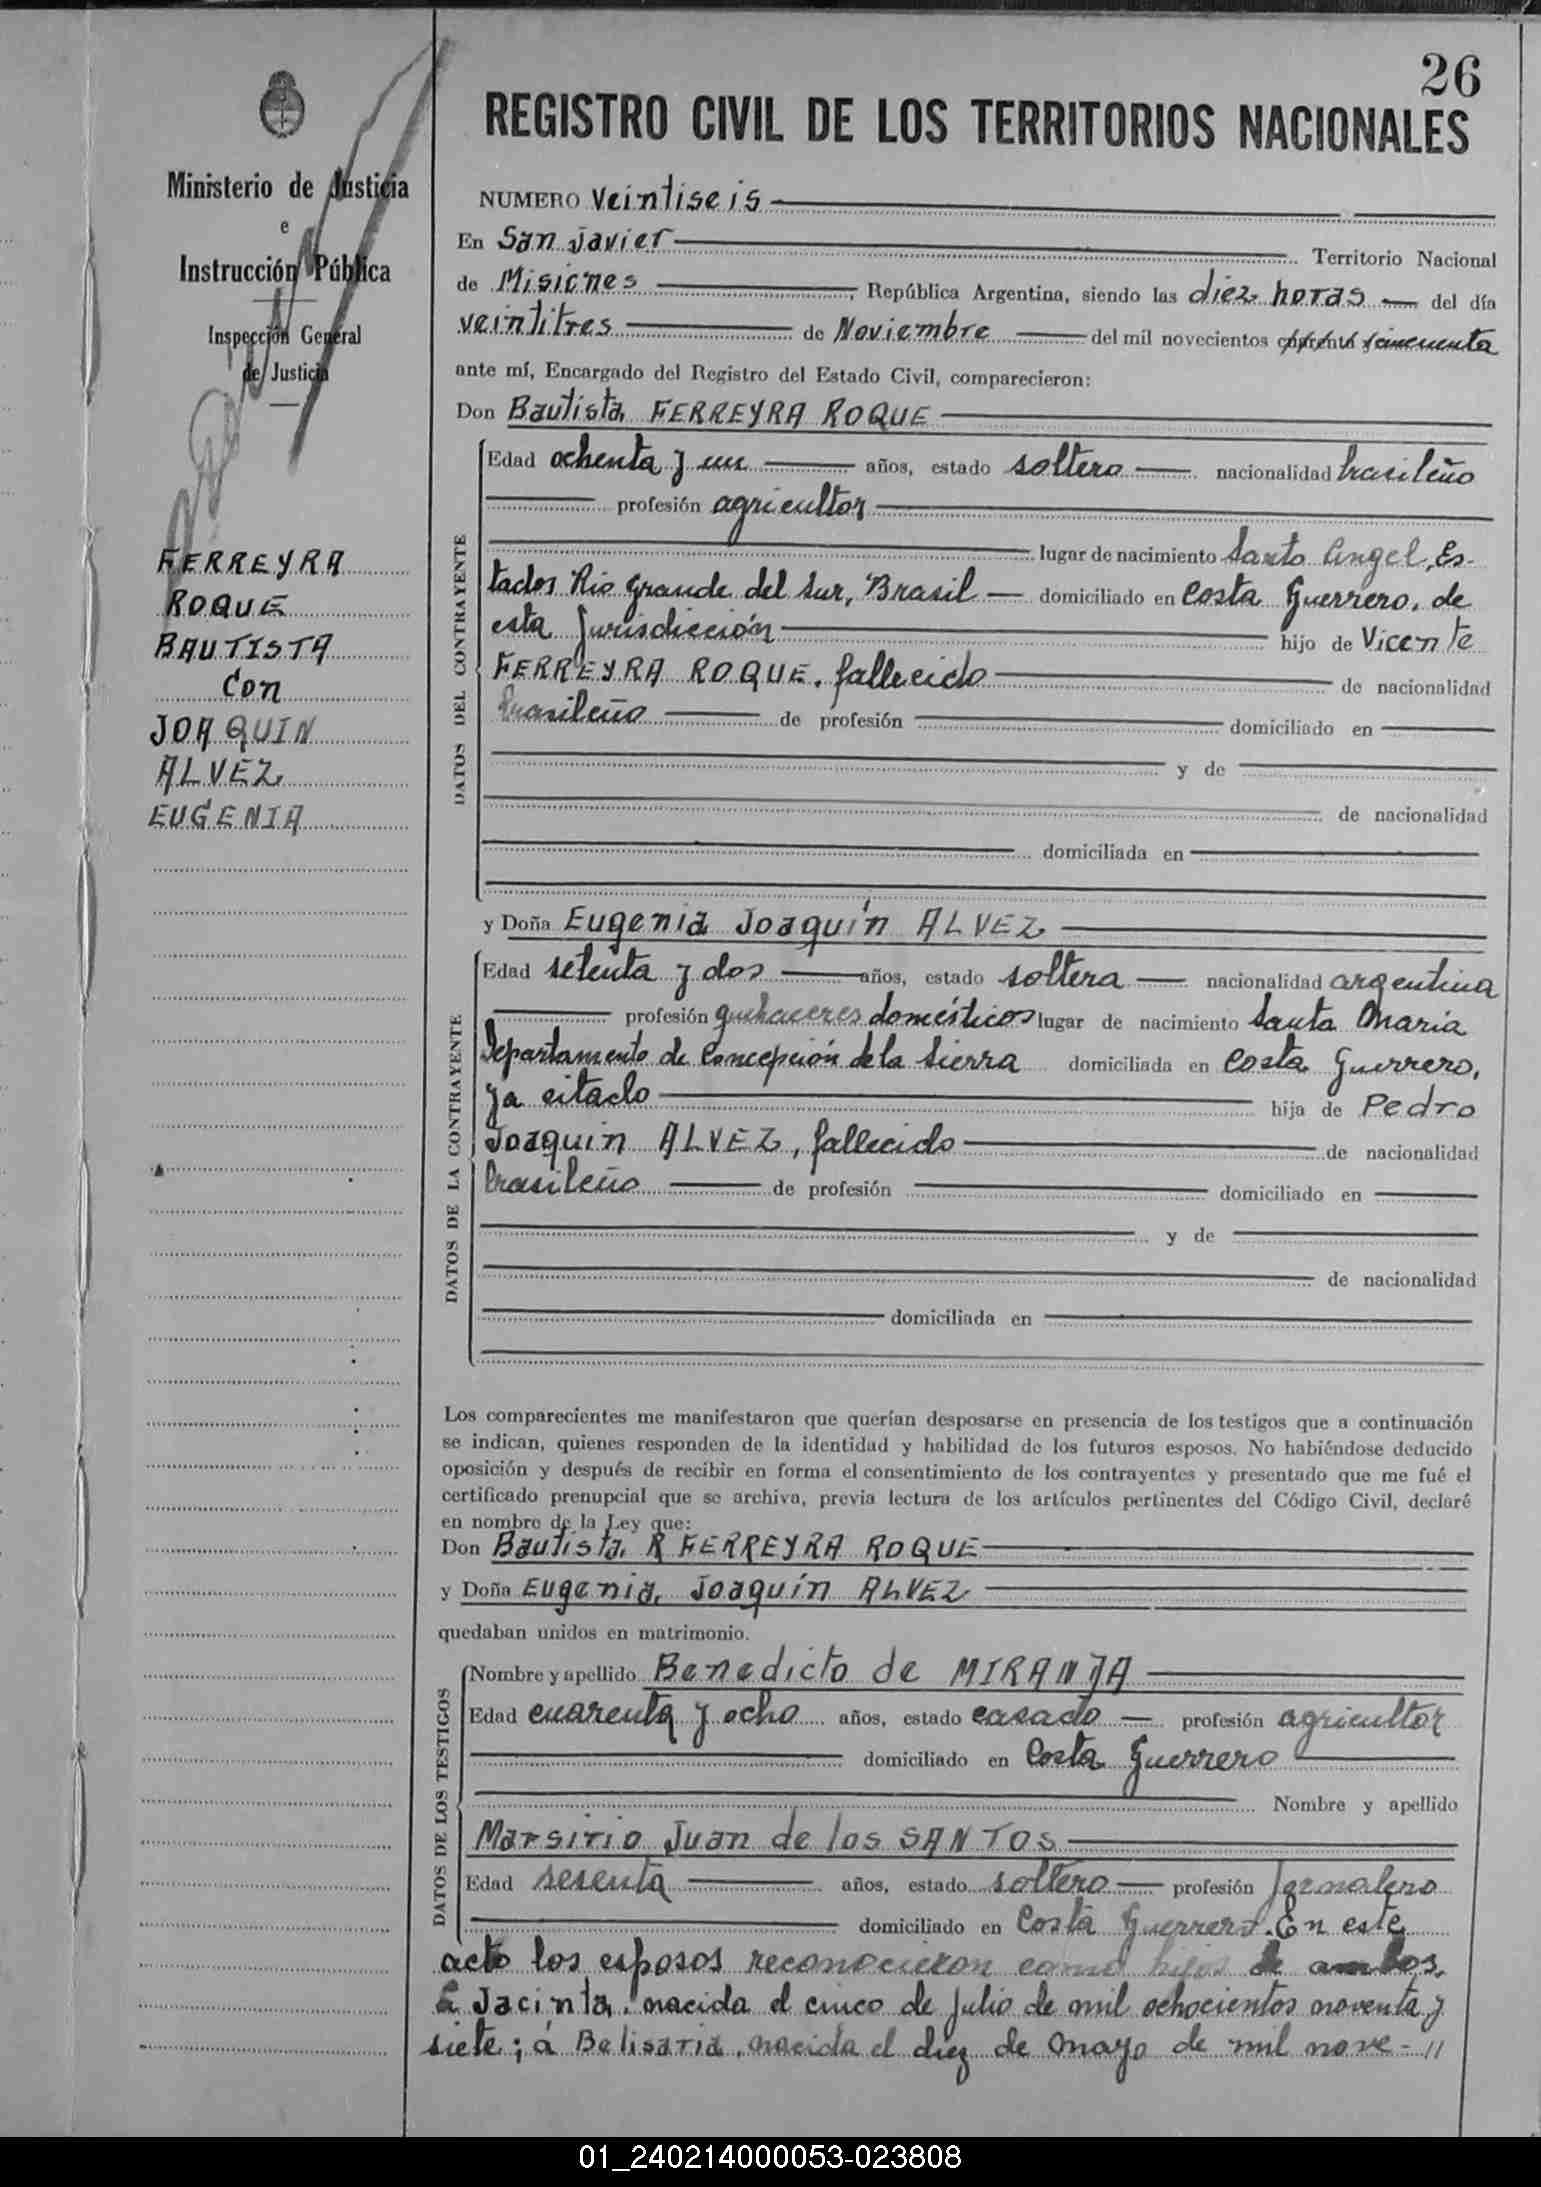 26
REGISTRO CIVIL DE LOS TERRITORIOS NACIONALES
Ministerio de Justicia
e
Instrucción Pública
Inspección General
de Justicia
FERREYRA
ROQUE
BAUTISTA
con
JOAQUIN
ALVEZ
EUGENIA
NUMERO veintiseis
En San Javier Territorio Nacional
de Misiones, República Argentina, siendo las diez horas del día
veintitres de Noviembre del mil novecientos cincuenta
ante mí, Encargado del Registro del Estado Civil, comparecieron:
Don Bautista FERREYRA ROQUE
DATOS DEL CONTRAYENTE
Edad ochenta y un años, estado soltero nacionalidad brasileño
profesión agricultor
lugar de nacimiento Santo Angel, Es-
tados Rio Grande del Sur, Brasil domiciliado en Costa Guerrero, de
esta Jurisdicción hijo de Vicente
FERREYRA ROQUE, fallecido de nacionalidad
brasileño de profesión domiciliado en
y de
de nacionalidad
domiciliada en
y Doña Eugenia Joaquín ALVEZ
DATOS DE LA CONTRAYENTE
Edad setenta y dos años, estado soltera nacionalidad argentina
profesión quehaceres domésticos lugar de nacimiento Santa Maria
Departamento de Concepción de la Sierra domiciliada en Costa Guerrero,
ya citado hija de Pedro
Joaquin ALVEZ, fallecido de nacionalidad
brasileño de profesión domiciliado en
y de
de nacionalidad
domiciliada en
Los comparecientes me manifestaron que querían desposarse en presencia de los testigos que a continuación
se indican, quienes responden de la identidad y habilidad de los futuros esposos. No habiéndose deducido
oposición y después de recibir en forma el consentimiento de los contrayentes y presentado que me fué el
certificado prenupcial que se archiva, previa lectura de los artículos pertinentes del Código Civil, declaré
en nombre de la Ley que:
Don Bautista R FERREYRA ROQUE
y Doña Eugenia Joaquín ALVEZ
quedaban unidos en matrimonio.
DATOS DE LOS TESTIGOS
Nombre y apellido Benedicto de MIRANDA
Edad cuarenta y ocho años, estado casado profesión agricultor
domiciliado en Costa Guerrero
Nombre y apellido
Marsirio Juan de los SANTOS
Edad sesenta años, estado soltero profesión Jornalero
domiciliado en Costa Guerrero. En este
acto los esposos reconocieron como hijos de ambos,
a Jacinta, nacida el cinco de julio de mil ochocientos noventa y
siete; á Belisaria, nacida el diez de mayo de mil nove- //
01_240214000053-023808